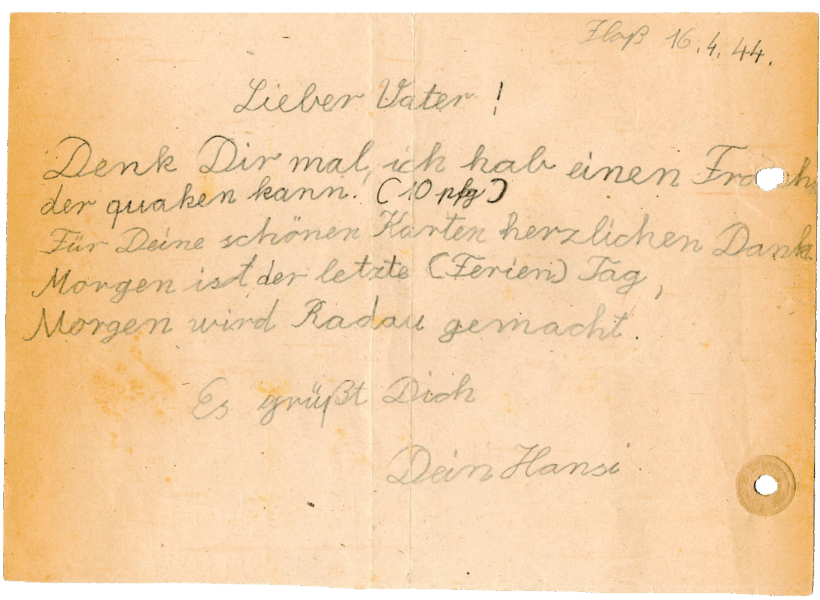 Floß 16.4.44.
Lieber Vater!
Denk Dir mal, ich hab einen Frosch
der quaken kann! (10 pfg)
Für Deine schönen Karten herzlichen Dank.
Morgen ist der letzte (Ferien) Tag,
Morgen wird Radau gemacht.
Es grüßt Dich
Dein Hansi.